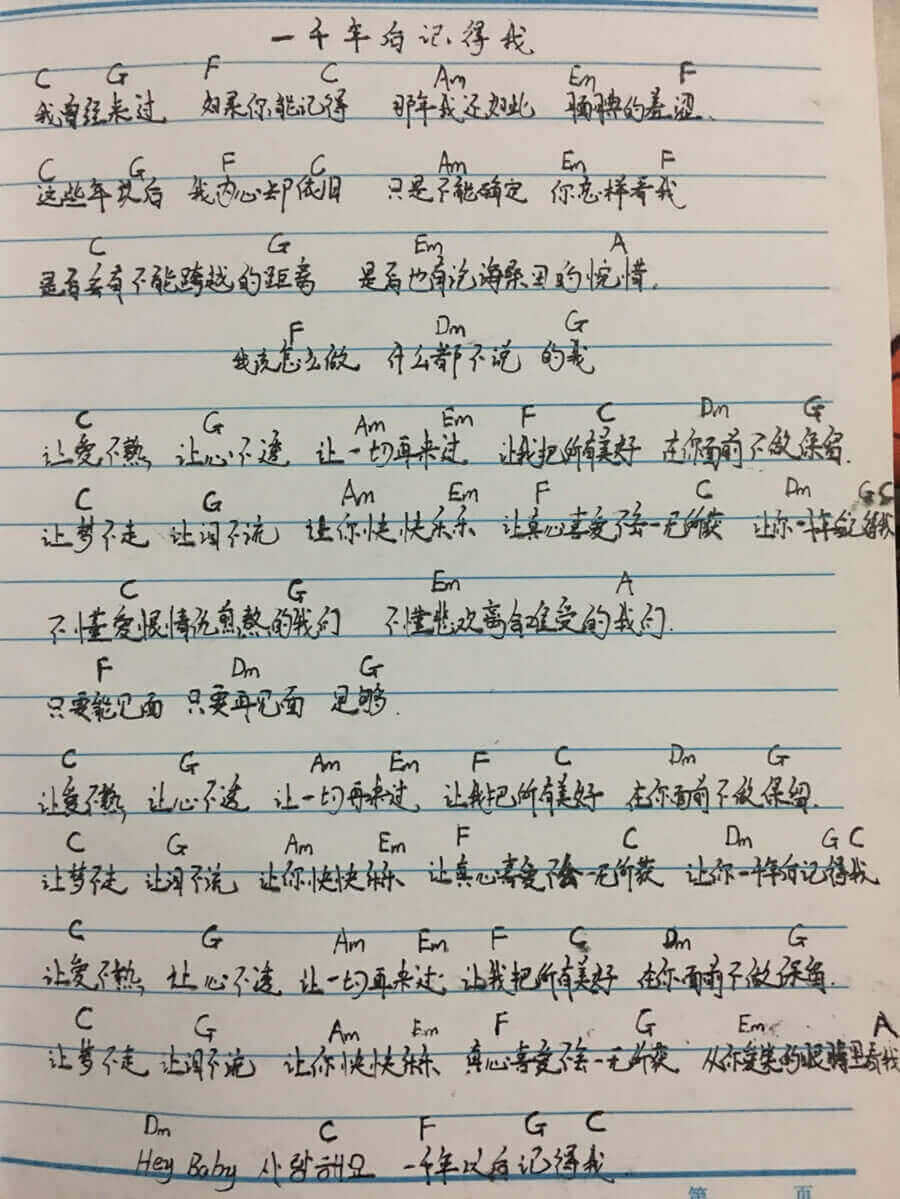 一千年后记得我
C G F C Am Em F
我曾经来过 如果你能记得 那年我还如此 腼腆的羞涩.
C G F C Am Em F
这些年以后 我内心却依旧 只是不能确定 你怎样看我
C G Em A
是否会有不能跨越的距离 是否也有沧海桑田的惋惜.
F Dm G
我该怎么做 什么都不说 的我
C G Am Em F C Dm G
让爱不熟, 让心不透 让一切再来过 让我把所有美好 在你面前不做保留.
C G Am Em F C Dm G C
让梦不走 让泪不流 让你快快乐乐 让真心喜爱不会一无所获 让你一千年后记得我
C G Em A
不懂爱恨情仇煎熬的我们 不懂悲欢离合难受的我们.
F Dm G
只要能见面 只要再见面 足够.
C G Am Em F C Dm G
让爱不熟, 让心不透 让一切再来过 让我把所有美好 在你面前不做保留.
C G Am Em F C Dm G C
让梦不走 让泪不流 让你快快乐乐 让真心喜爱不会一无所获 让你一千年后记得我
C G Am Em F C Dm G
让爱不熟, 让心不透 让一切再来过 让我把所有美好 在你面前不做保留.
C G Am Em F G Em A
让梦不走 让泪不流 让你快快乐乐 真心喜爱不会一无所获 从你爱笑的眼睛里看我
Dm C F G C
Hey Baby 사랑해요 一千年以后记得我.
第 页